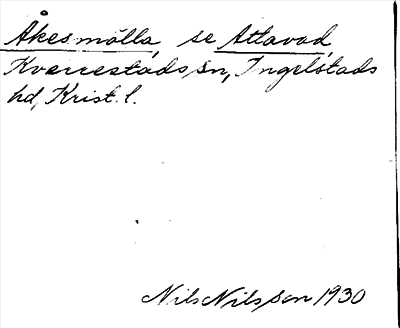 Åkesmölla, se Attavad,
Kverrestads sn, Ingelstads
hd, Krist. l.
Nils Nilsson 1930